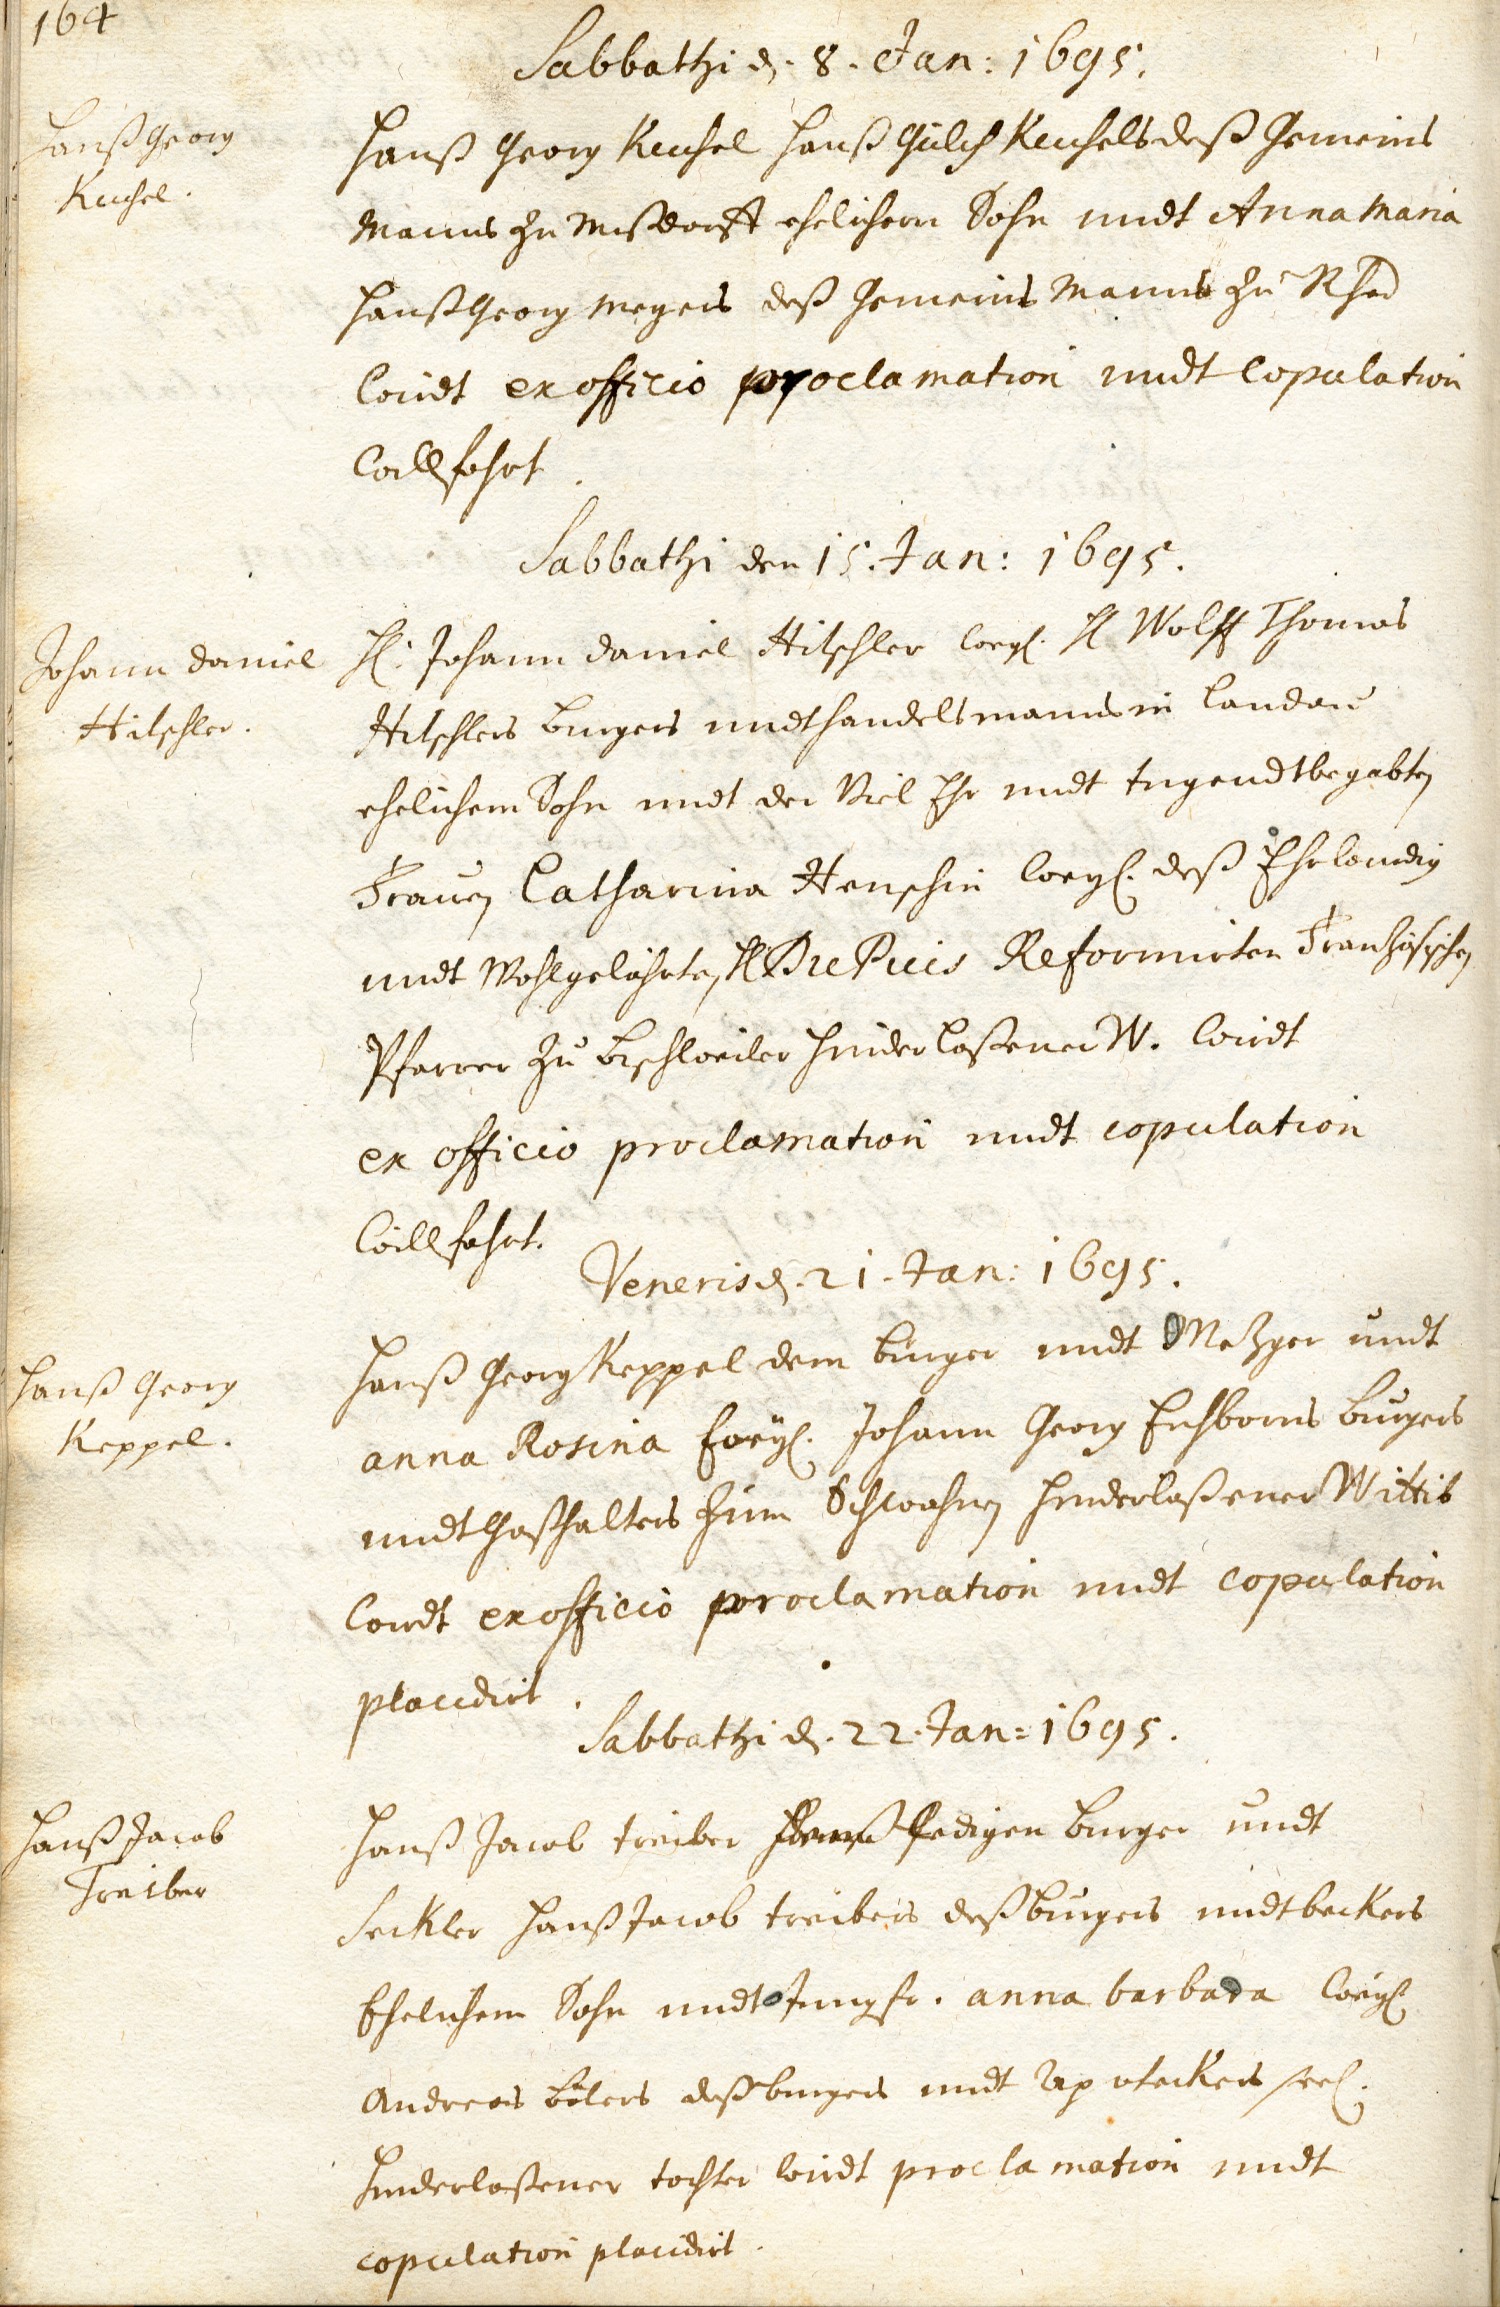 164
Sabbathi d. 8. Jan: 1695.
Hanß Georg
Kuchel.
Hanß Georg Kuchel Hanß Gülch Kuchels deß Gemeins
Manns zu Mußdorff ehelichem Sohn undt Anna Maria
Hanß Georg Meyers deß Gemeins Manns zu Rhod
wirdt ex officio proclamation undt copulation
willfahrt.
Sabbathi den 15. Jan: 1695.
Johann Daniel
Hitschler.
H. Johann Daniel Hitschler H. Wolff Thomas
Hitschlers burgers undt handelsmanns in Landau
ehelichem Sohn undt der Viel Ehr undt tugendtbegabten
Frauen Catharina deß Ehrwürdig
undt Wohlgelährten H. Du Puis Reformirten Frantzösischen
Pfarrer zu Bischweiler hinderlaßener W. wirdt
ex officio proclamation undt copulation
willfahrt.
Veneris d. 21. Jan: 1695.
Hanß Georg
Keppel.
Hanß Georg Keppel dem burger undt Metzger undt
Anna Rosina Johann Georg Eichborns burgers
undt Gasthalters zum Schwahnen hinderlaßener Wittib
wirdt ex officio proclamation undt copulation
placidirt.
Sabbathi d. 22. Jan: 1695.
Hanß Jacob
Treiber
Hanß Jacob Treiber ledigen burger undt
Seckler Hanß Jacob Treibers deß burgers undt beckers
Ehelichem Sohn undt Jungfr. Anna Barbara
Andreas deß burgers undt Apoteckers seel.
hinderlaßener tochter wirdt proclamation undt
copulation placidirt.